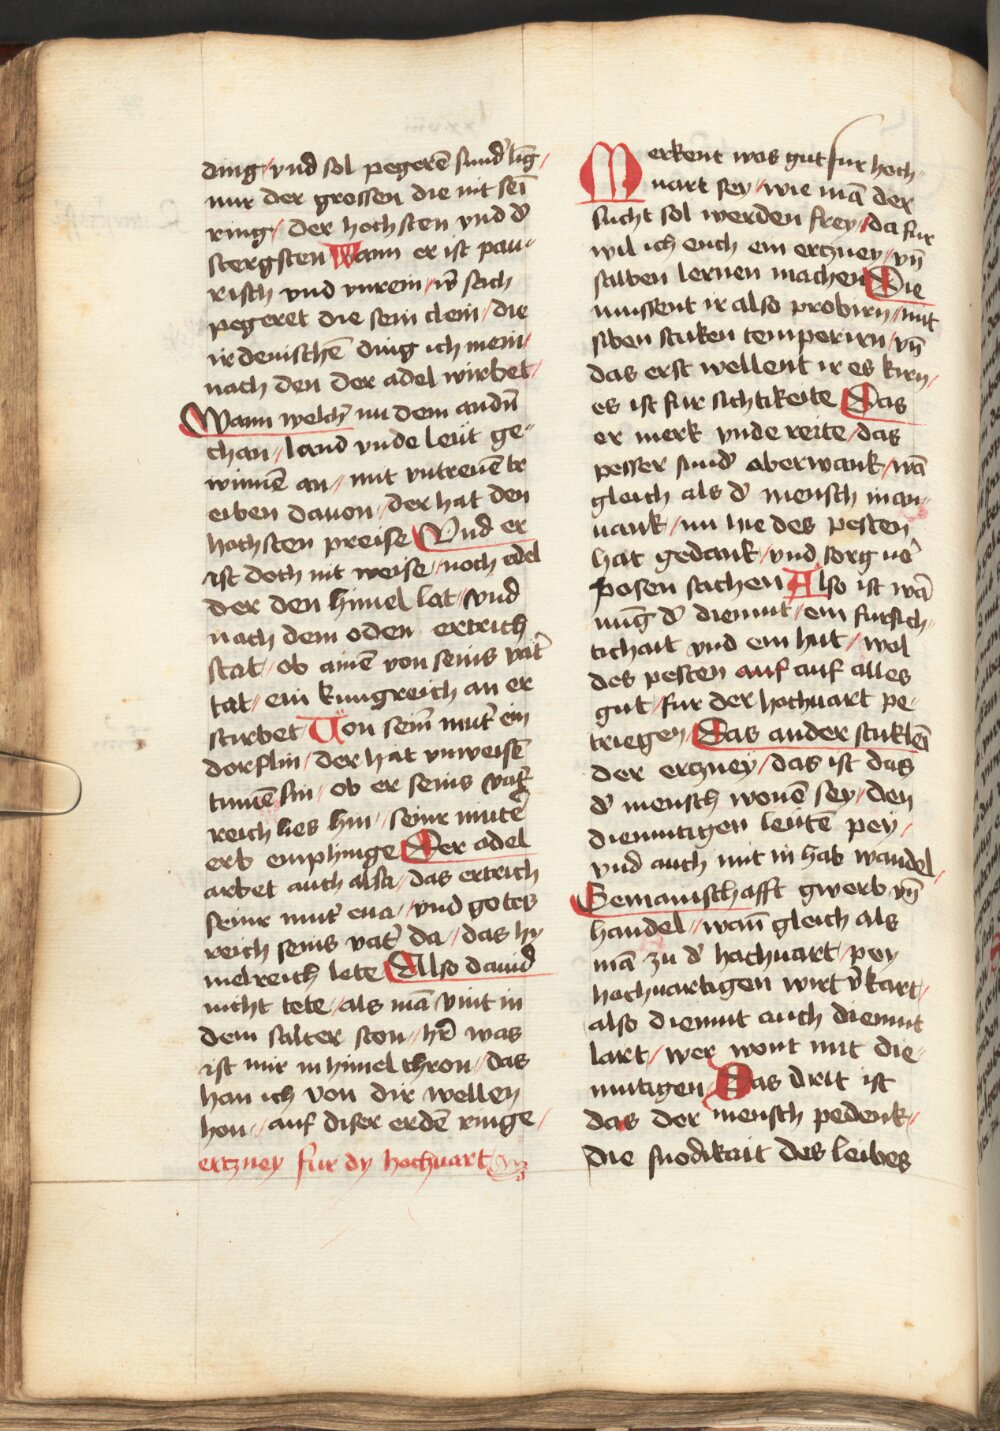 ding / vnd sol pegerē sund' lig /
nur der grossen die nit seī
ring / der hochsten vnd d'
stergsten Wann er ist pau-
risch vnd vnrein / w' sach
pegeret die sein clein / die
irdenischē ding ich mein /
nach den der adel wirbet /
Wann welch' nu dem andn̄
than / land vnde leut ge-
winnē an / mit vntreuē tr
eiben dauon / der hat den
hochsten preise Vnd er
ist doch nit weise / noch edel
der den himel lat / vnd
nach dem oden ertrich
stat / ob ainē von seins vat'
tat / ein kungreich an er
sturbet Von seīn mut' ein
dorflin / der hat vnweisē
tumē sin / ob er seins vat'
reich lies hin / seinr mut'
erb emphinge Der adel
arbet auch also / das ertrich
seinr mut' eua / vnd gotes
reich seins vat' da / das hy
melreich lete Also dauid
nicht tete / als mā vint in
dem salter ston / hr̄ was
ist mir in himel thron / das
han ich von dir wellen
hon / auf diser erdē ringe /
ertzney fur dy hochuart
Merkent was gut fur hoch-
uart sey / wie mā der
sucht sol werden frey / da fur
wil ich euch ein ertzney / vn̄
salben lernen machen Die
mussent ir also probirn / mit
siben stuken temperirn / vn̄
das erst wellent ir es kirn /
es ist fur sichtikeite Das
er merk vnde reite / das
pesser sund aberwank / wā
gleich als d' mensch in an-
uank / nu hie des pesten
hat gedank / vnd sorg ue'
posen sachen Also ist wā
nūg d' diemut / ein fursich-
tichait vnd ein hut / wol
des pesten auf auf alles
gut / fur der hochuart pe-
triegen Das ander stuklē
der ertzney / das ist das
d' mensch wonē sey / den
diemutigen leutē pey /
vnd auch mit in hab wandel /
Gemainschafft gwerb vn̄
handel / wan̄ gleich als
mā zu d' hachuart / pey
hochuartigen wirt v'kart /
also diemut auch diemut
lart / wer wont mit die-
mutigen / Das drit ist
das der mensch pedenk /
die snodikait des leibes